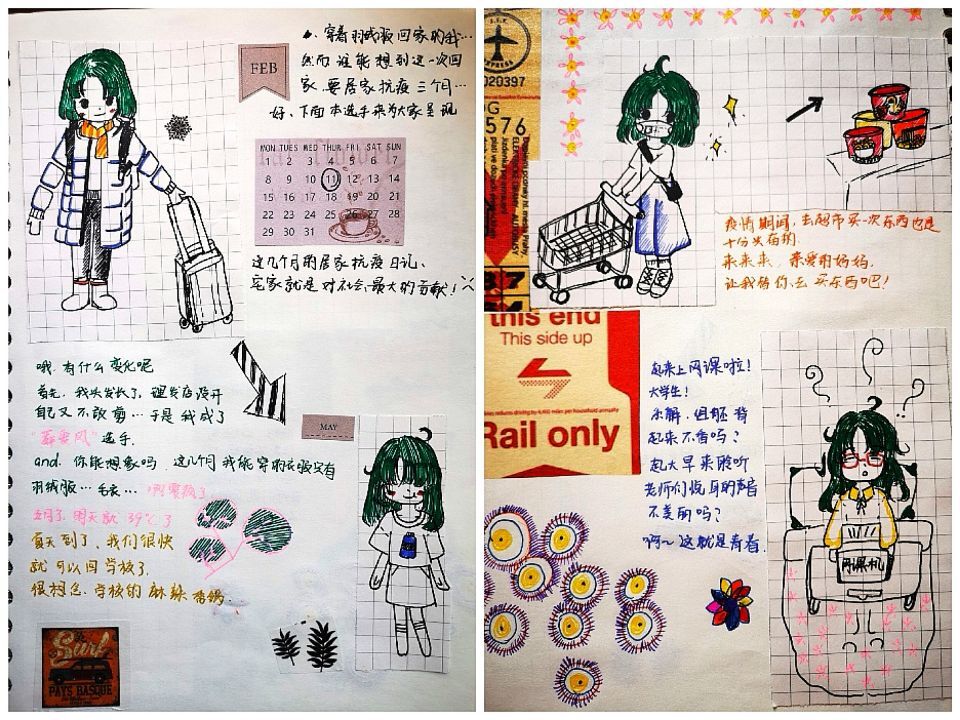 FEB
穿着羽绒服回家的我…
然而谁能想到这一次回
家要居家抗疫三个月…
好、下面本选手来为大家呈现
MON TUES WED THUR FRI SAT SUN
1 2 3 4 5 6 7
8 9 10 11 12 13 14
15 16 17 18 19 20 21
22 23 24 25 26 27 28
29 30 31
这几个月的居家抗疫日记、
宅家就是对社会最大的贡献！
哦.有什么变化呢
首先，我头发长了，理发店没开
自己又不敢剪…于是我成了
选手.
and.你能想象吗，这几个月我能穿的衣服只有
羽绒服…毛衣…
五月了.明天就39℃了
夏天到了.我们很快
就可以回学校了.
很想念.学校的麻辣香锅.
MAY
Surf
PAYS BASQUE
EXPRESS
020397
576
疫情期间，去超市买一次东西也是
十分关的
来来来，亲爱的妈妈.
让我替你去买东西吧！
this end
This side up
Rail only
起来上网课啦！
大学生！
不解，但胚芽
起来不香吗？
起大早来聆听
老师们悦耳的声音
不美丽吗？
啊～这就是青春.
网课机